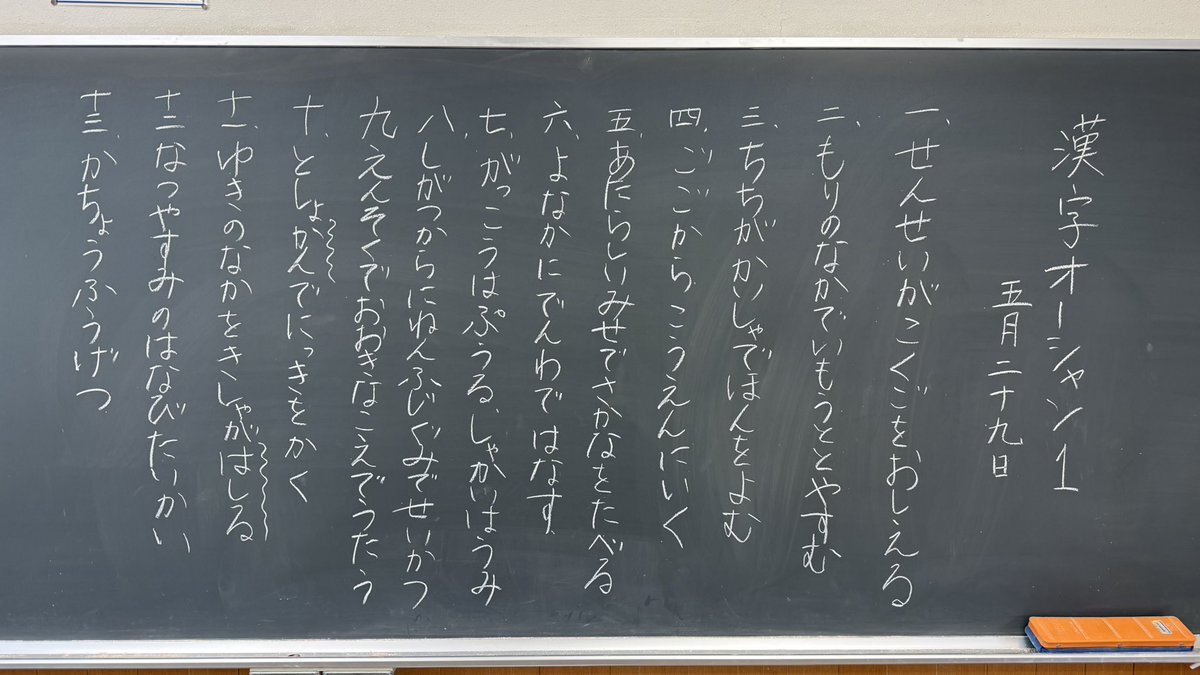 漢字オーシャン1
五月二十九日
一、せんせいがこくごをおしえる
二、もりのなかでいもうととやすむ
三、ちちがかいしゃでほんをよむ
四、ごごからこうえんにいく
五、あたらしいみせでさかなをたべる
六、よなかにでんわではなす
七、がっこうはぷうる、しゃかいはうみ
八、しがつからにねんふじぐみでせいかつ
九えんそくでおおきなこえでうたう
十、としょかんでにっきをかく
十一、ゆきのなかをきしゃがはしる
十二なつやすみのはなびたいかい
十三、かちょうふうげつ